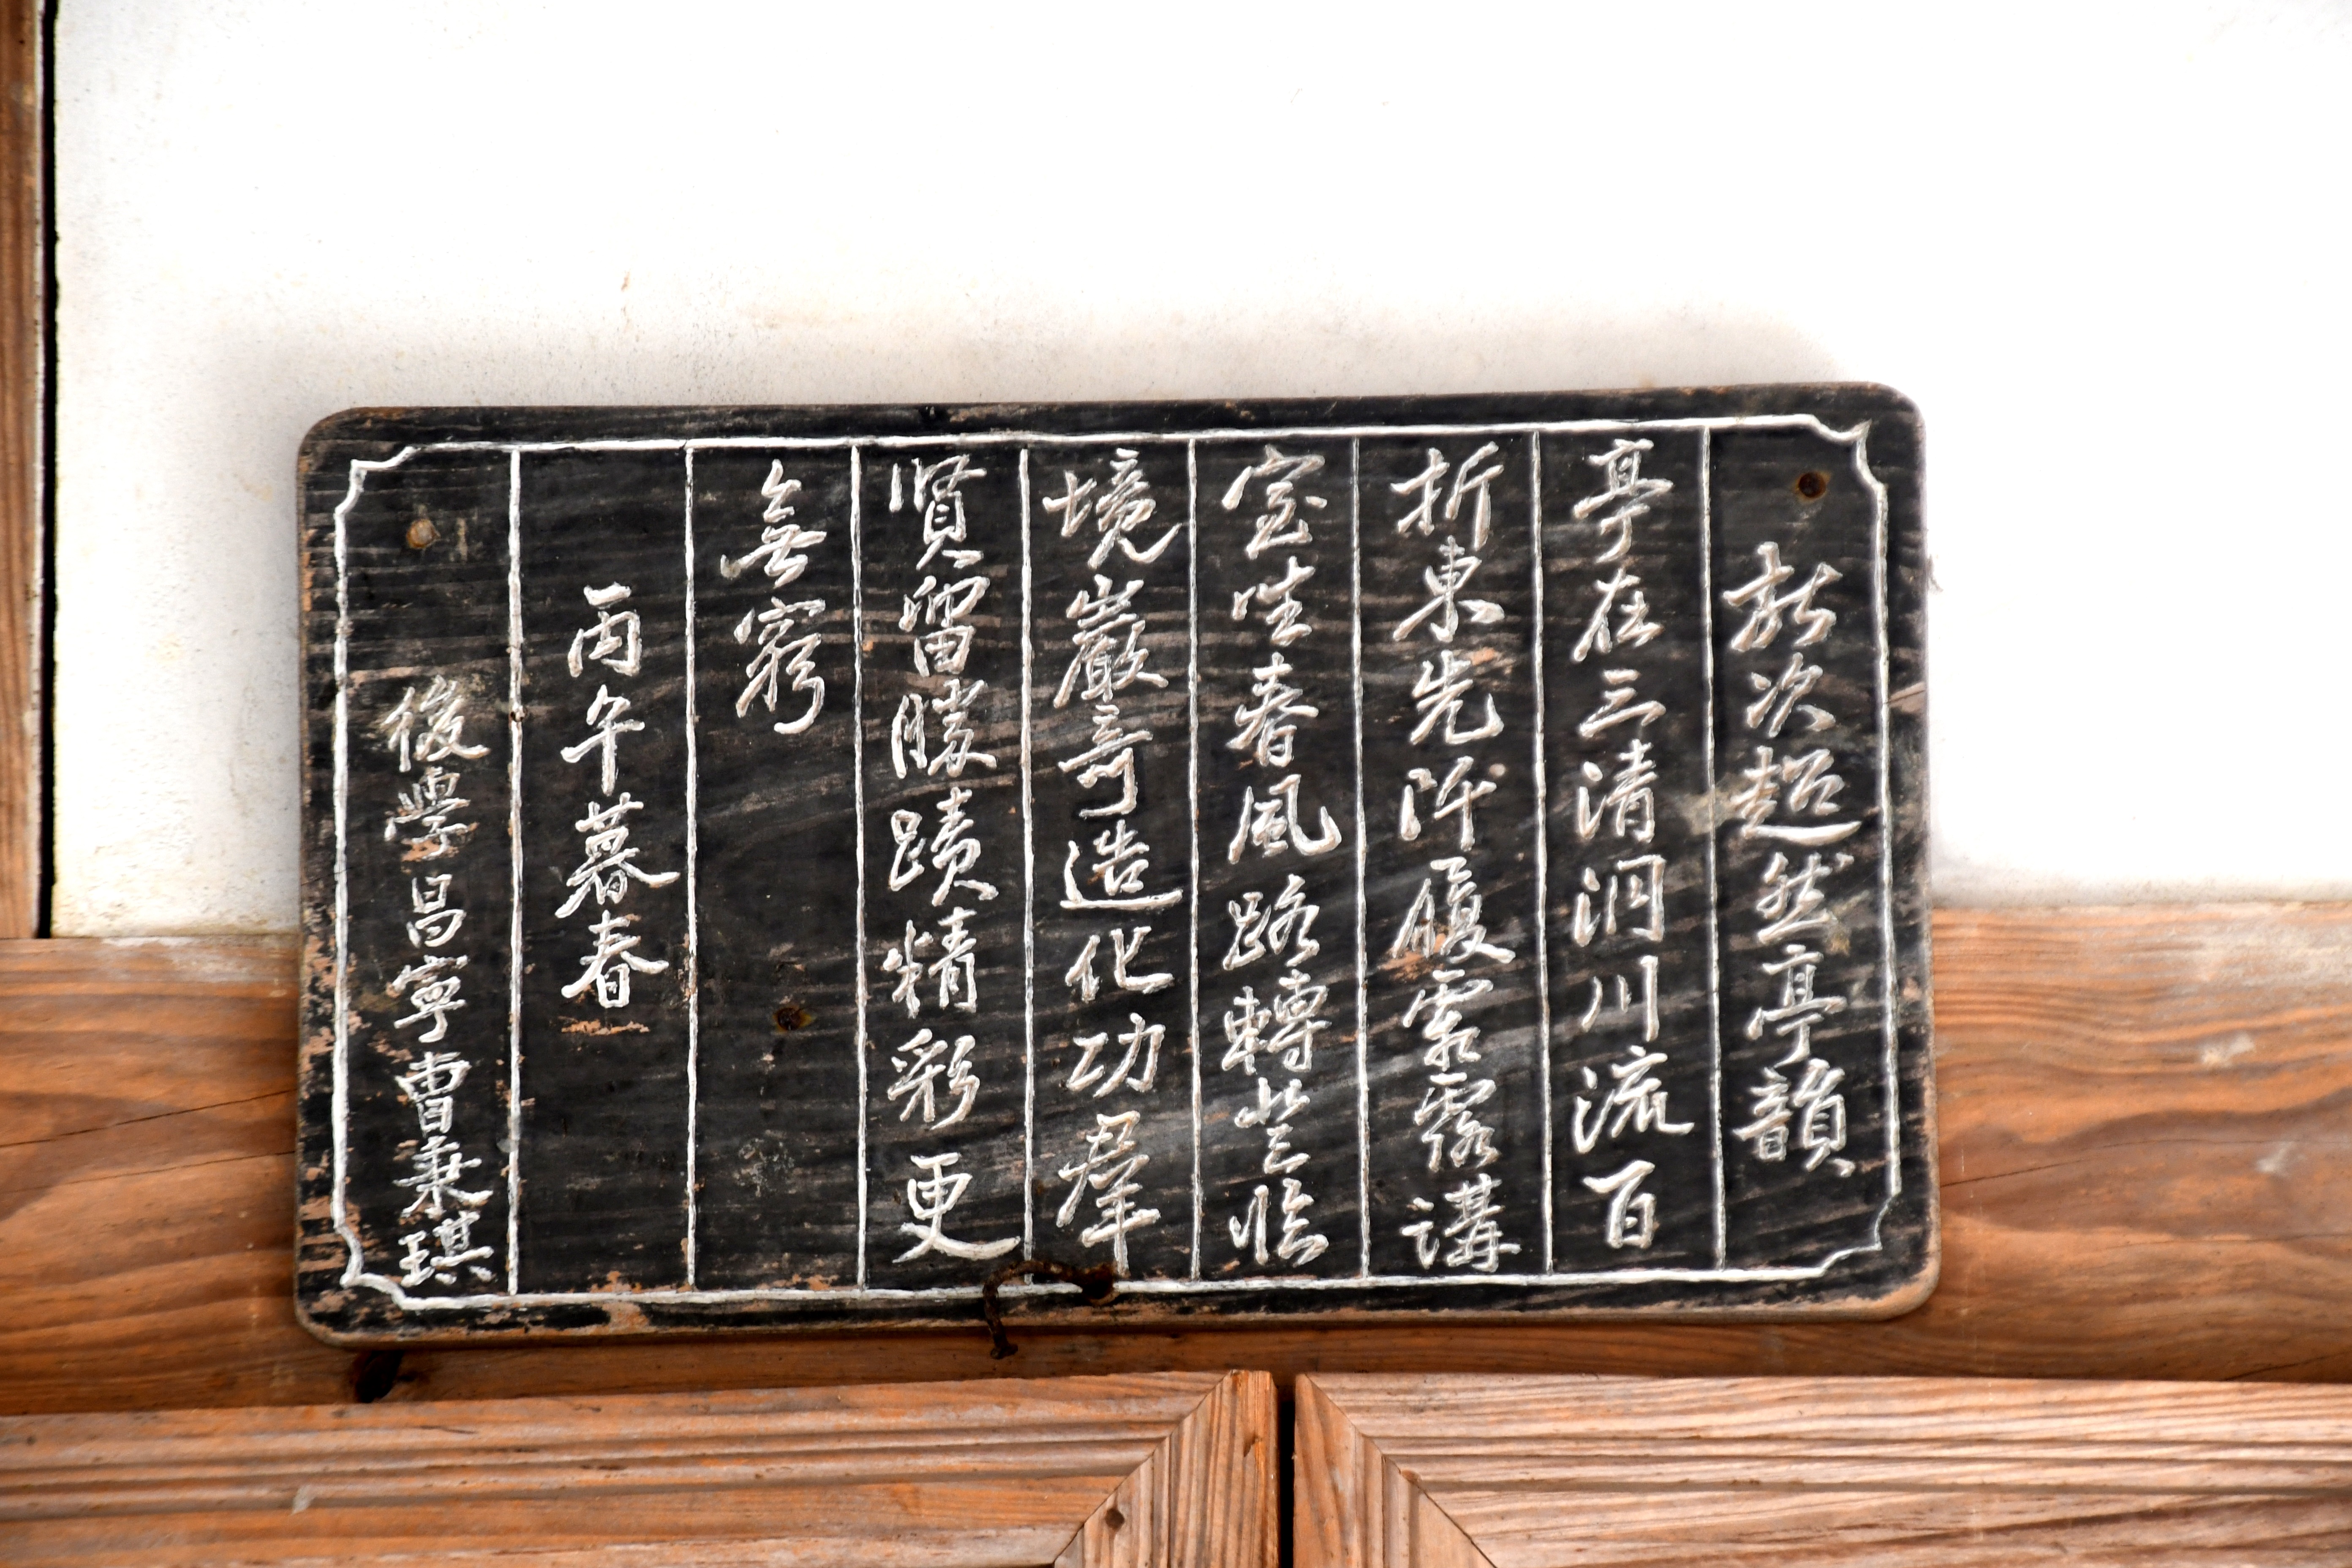 敬次超然亭韻
亭在三清洞川流百
折東先阡履霜露講
室坐春風路轉登臨
境巖奇造化功羣
賢留勝蹟精彩更
無窮
丙午暮春
後學昌寧曺秉琪